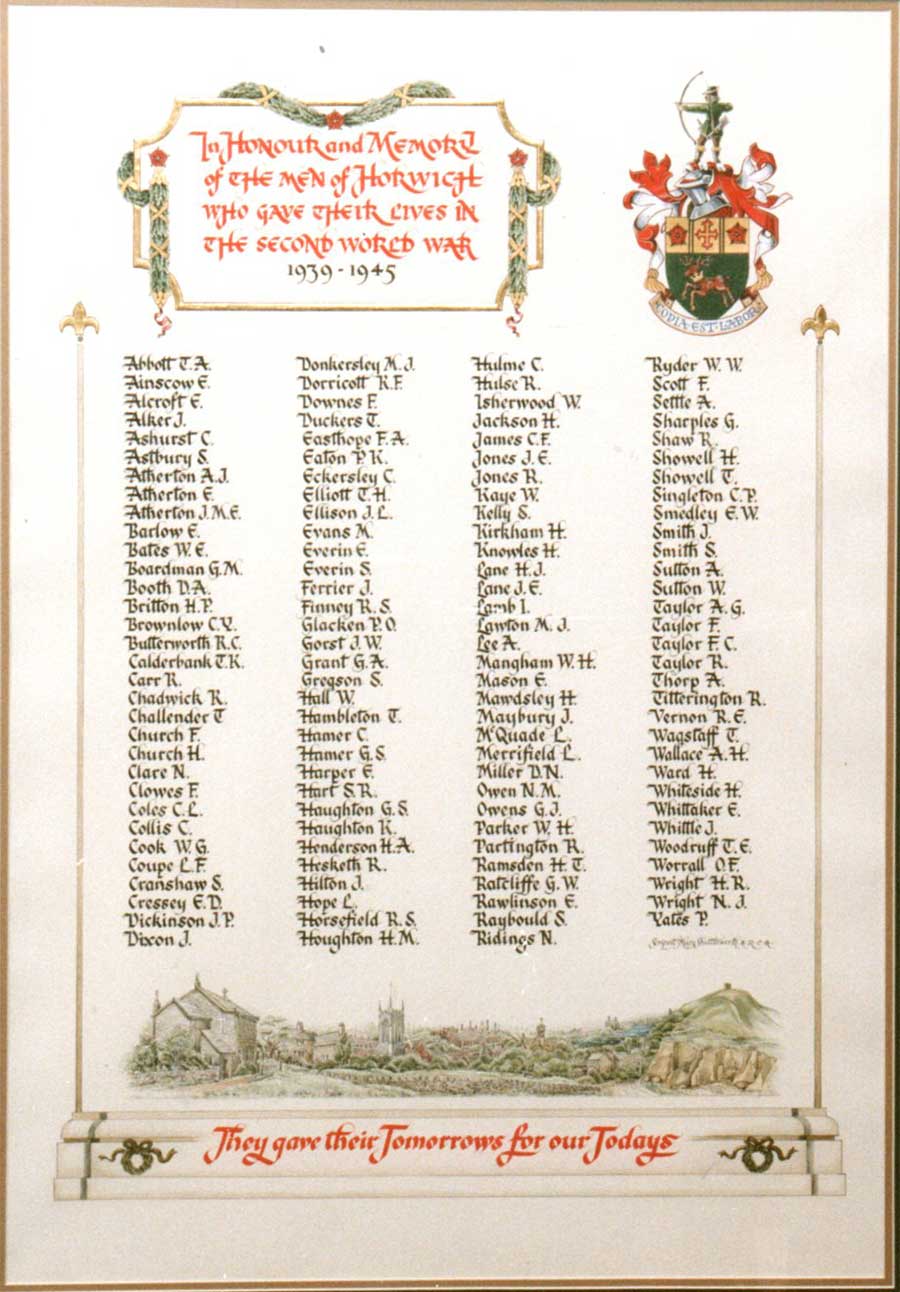 In Honour and Memory
of the men of Horwich
who gave their lives in
the second world war
1939-1945
Abbott T.A.
Ainscow E.
Alcroft E.
Alker J.
Ashurst C.
Astbury S.
Atherton A.J.
Atherton E.
Atherton J.M.E.
Barlow E.
Bates W.E.
Boardman G.M.
Booth D.A.
Britton H.P.
Brownlow C.Y.
Butterworth R.C.
Calderbank T.K.
Carr R.
Chadwick R.
Challender T
Church F.
Church H.
Clare N.
Clowes F.
Coles C.L.
Collis C.
Cook W.G.
Coupe L.F.
Cranshaw S.
Cressey E.D.
Dickinson J.P.
Dixon J.
Donkersley M.J.
Dorricott R.F.
Downes F.
Duckers T.
Easthope F.A.
Eaton P.K.
Eckersley C.
Elliott T.H.
Ellison J.L.
Evans M.
Everin E.
Everin S.
Ferrier J.
Finney R.S.
Glacken P.O.
Gorst J.W.
Grant G.A.
Gregson S.
Hall W.
Hambleton T.
Hamer C.
Hamer G.S.
Harper E.
Hart S.R.
Haughton G.S.
Haughton K.
Henderson H.A.
Hesketh R.
Hilton J.
Hope L.
Horsefield R.S.
Houghton H.M.
Hulme C.
Hulse R.
Isherwood W.
Jackson H.
James C.F.
Jones J.E.
Jones R.
Kaye W.
Kelly S.
Kirkham H.
Knowles H.
Lane H.J.
Lane J.E.
Lamb I.
Lawton M.J.
Lee A.
Mangham W.H.
Mason E.
Mawdsley H.
Maybury J.
McQuade L.
Merrifield L.
Miller D.N.
Owen N.M.
Owens G.J.
Parker W.H.
Partington R.
Ramsden H.T.
Ratcliffe G.W.
Rawlinson E.
Raybould S.
Ridings N.
Ryder W.W.
Scott F.
Settle A.
Sharples G.
Shaw R.
Showell H.
Showell T.
Singleton C.P.
Smedley E.W.
Smith J.
Smith S.
Sutton A.
Sutton W.
Taylor A.G.
Taylor F.
Taylor F.C.
Taylor R.
Thorp A.
Titterington R.
Vernon R.E.
Wagstaff T.
Wallace A.H.
Ward H.
Whiteside H.
Whittaker E.
Whittle J.
Woodruff T.E.
Worrall O.F.
Wright H.R.
Wright N.J.
Yates P.
They gave their Tomorrows for our Todays